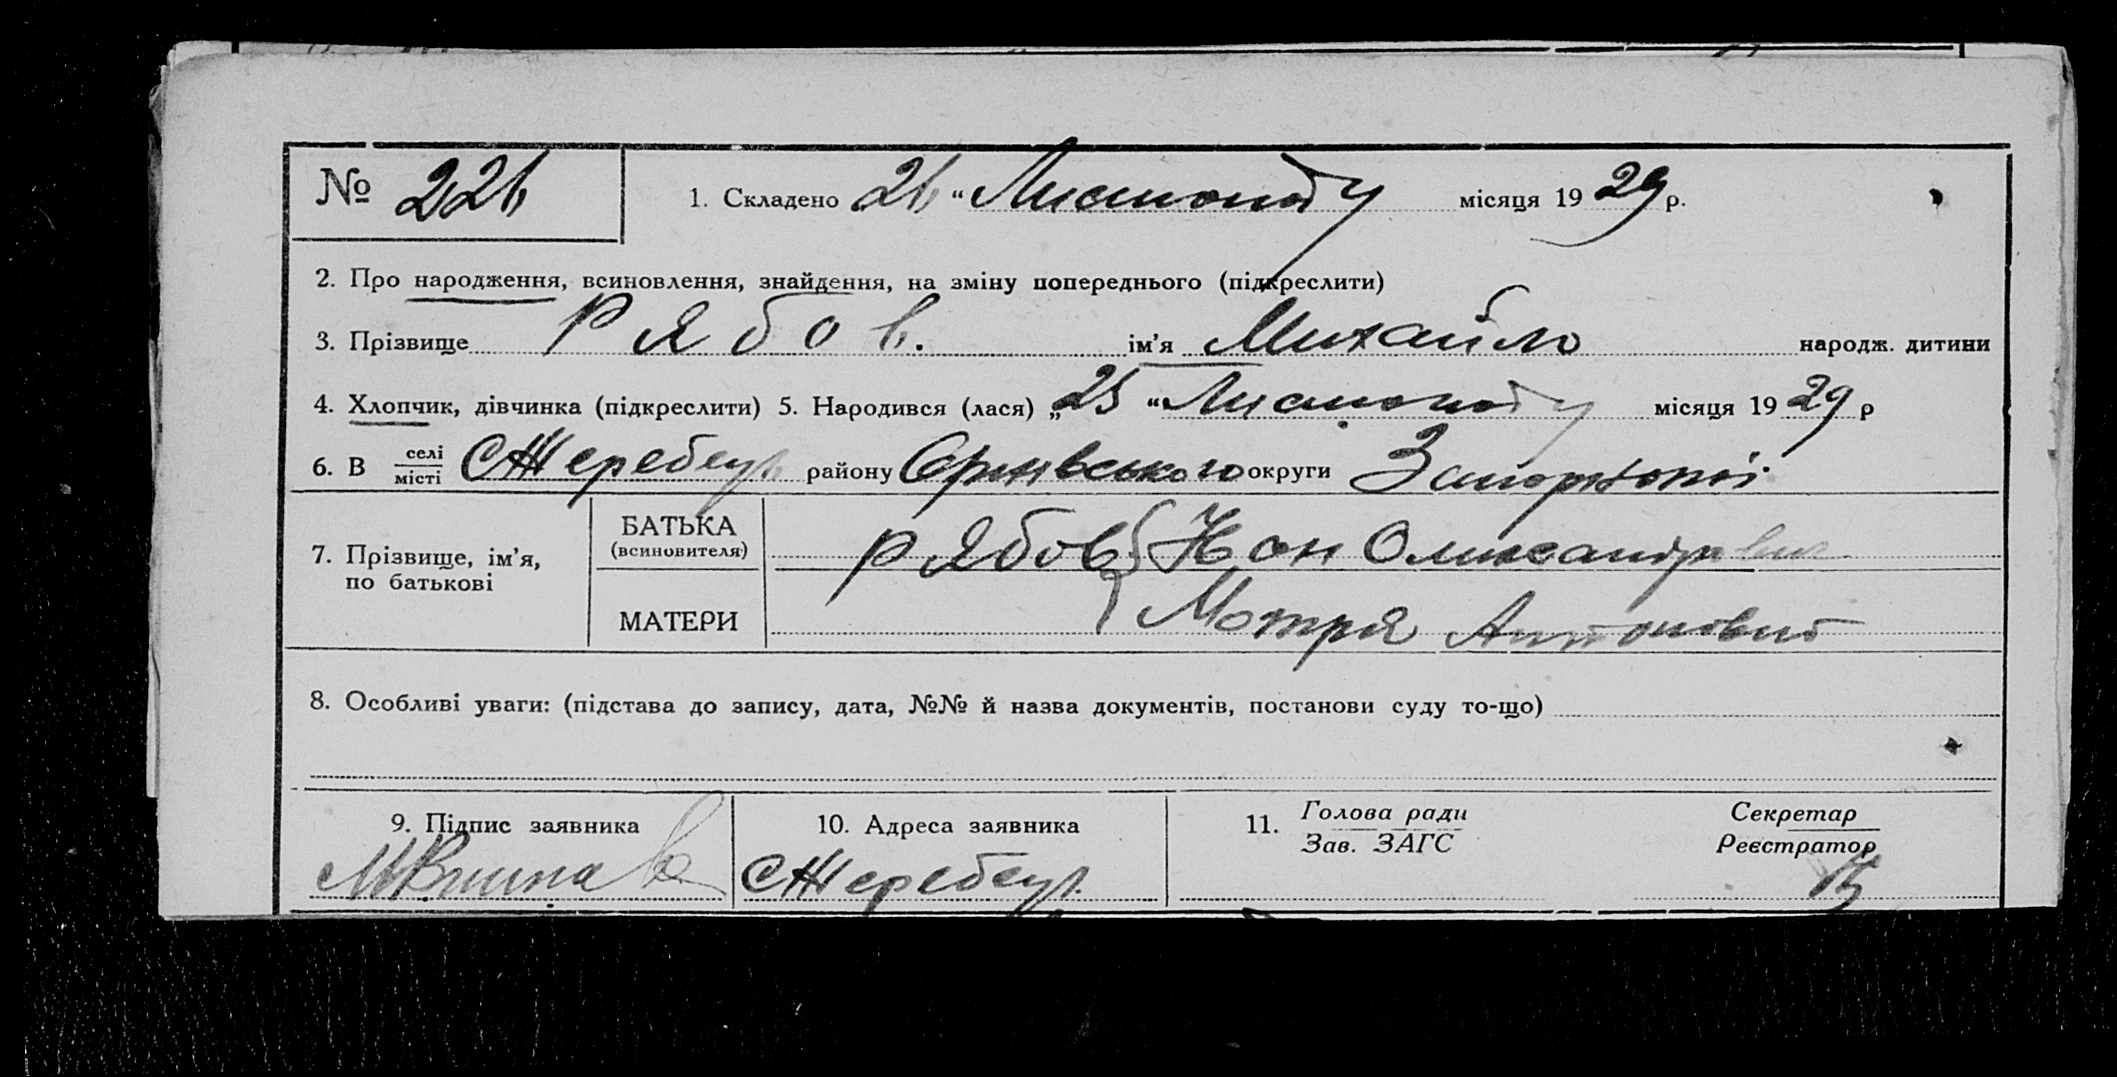 № 226 1. Складено 26 “ Листопаду місяця 1929 р.
2. Про народження, всиновлення, знайдення, на зміну попереднього (підкреслити)
3. Прізвище Рябов. ім’я Михайло народж. дитини
4. Хлопчик, дівчинка (підкреслити) 5. Народився (лася) „25 “ Листопаду місяця 1929 р
6. В селі місті С Жеребець району округи Запорізької
7. Прізвище, ім’я, по батькові
БАТЬКА (всиновителя) Рябов Олександрович
МАТЕРИ Мотря Антоновна
8. Особливі уваги: (підстава до запису, дата, №№ й назва документів, постанови суду то-що)
9. Підпис заявника 10. Адреса заявника 11. Голова ради Секретар
Зав. ЗАГС Реєстратор
С Жеребець